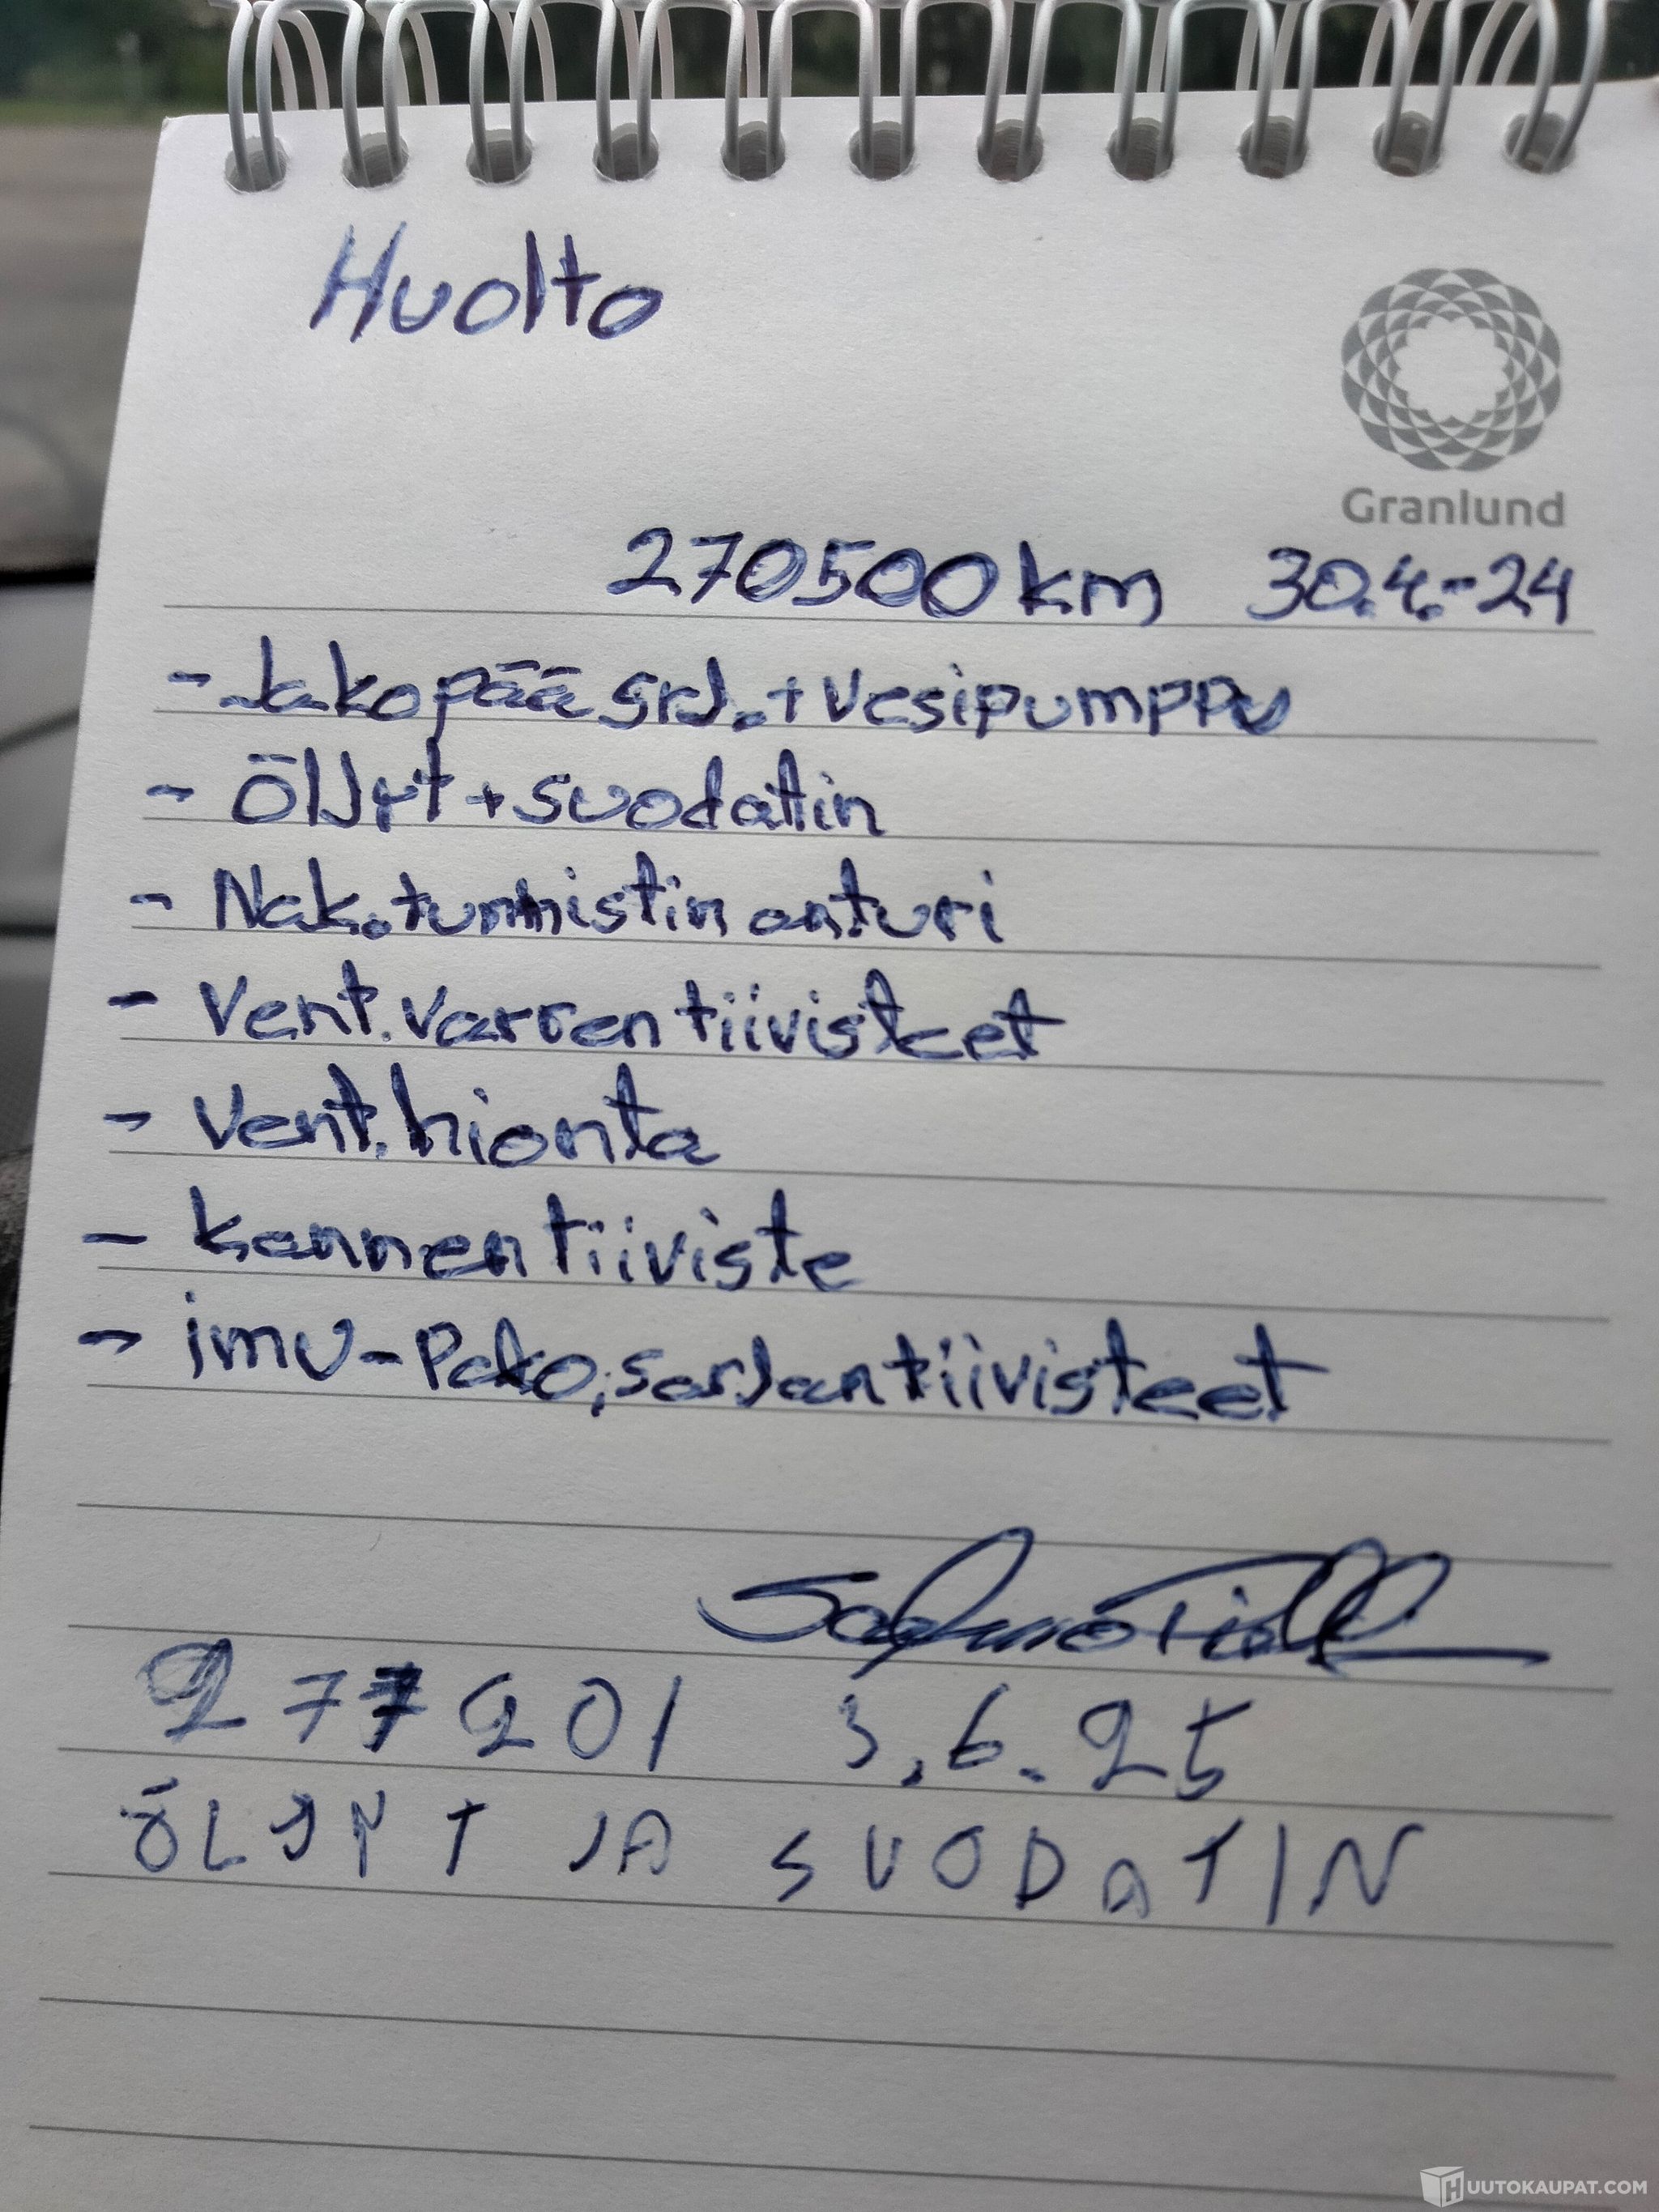 Huolto
Granlund
270500 km 30.4.-24
- Jakopää srj. + vesipumppu
- Öljyt + suodatin
- Nak.tunnistin anturi
- Vent. varren tiivisteet
- Vent. hionta
- kannen tiiviste
- imu - Pako, sarjan tiivisteet
277201 3.6.25
ÖLJYT JA SUODATIN
HUUTOKAUPAT.COM